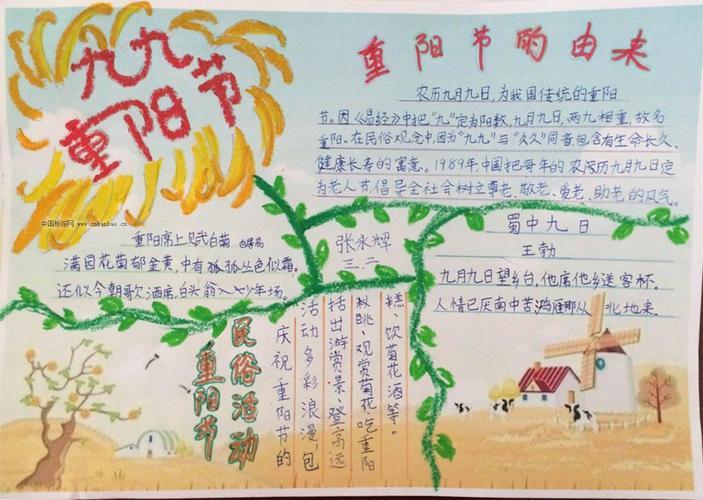 九九
重阳节
中国板报网 www.cnbanbao.cn
重阳节的由来
农历九月九日,为我国传统的重阳
节。因《易经》中把“九”定为阳数,九月九日,两九相重,故名
重阳。在民俗观念中,因为“九九”与“久久”同音,包含有生命长久、
健康长寿的寓意。1989年,中国把每年的农历九月九日定
为老人节,倡导全社会树立尊老、敬老、爱老、助老的风气。
重阳席上赋白菊
满园花菊郁金黄,中有孤孤丛色似霜。
还似今朝歌酒席,白头翁入少年场。
张永辉
三.二
蜀中九日
王勃
九月九日望乡台,他席他乡送客杯。
人情已厌南中苦,鸿雁那从北地来.
重阳节
民俗活动
庆祝重阳节的
活动多彩浪漫,包
括出游赏景、登高远
眺、观赏菊花、吃重阳
糕、饮菊花酒等。